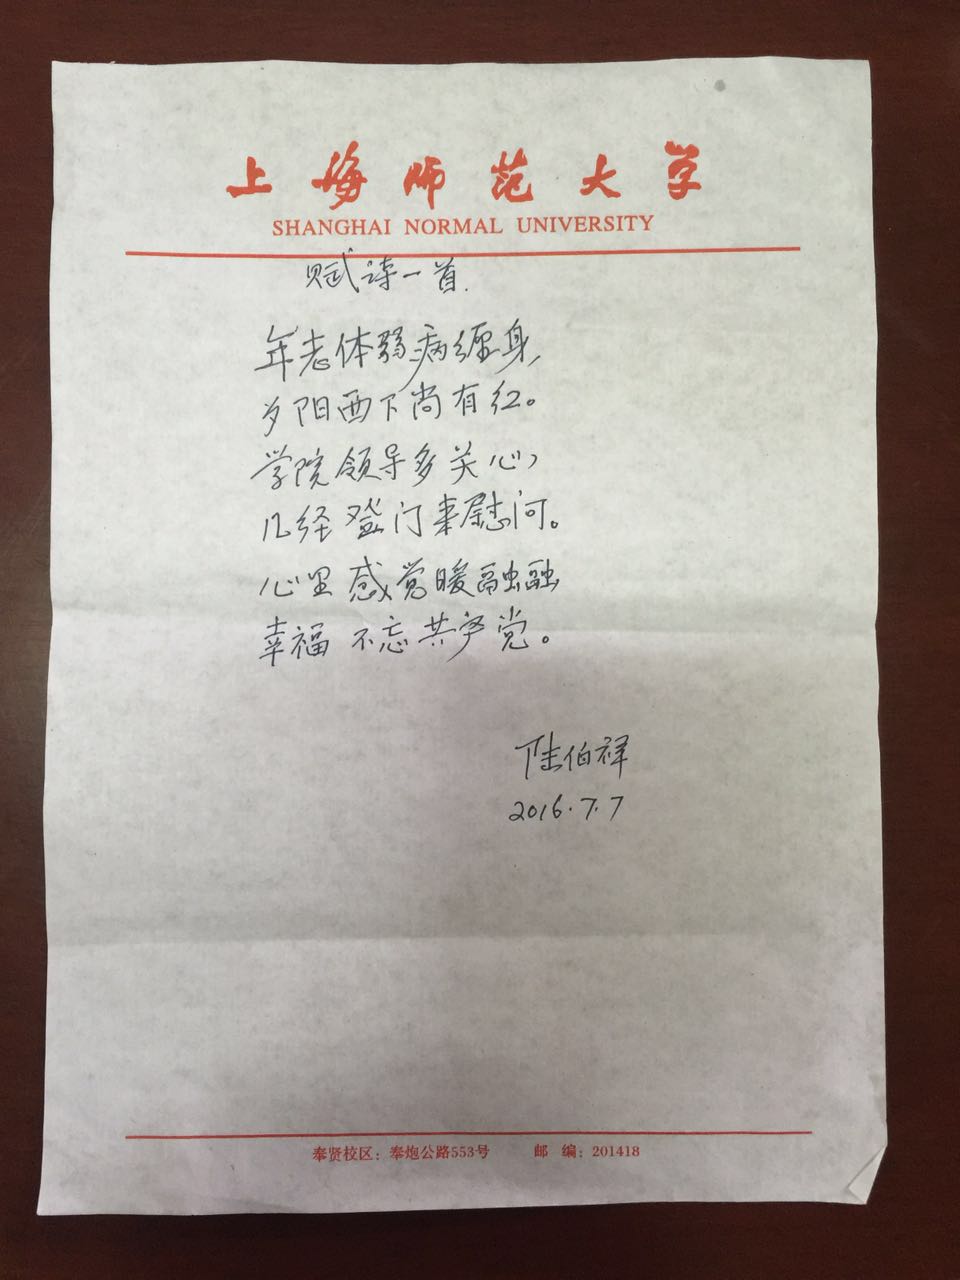 上海师范大学
SHANGHAI NORMAL UNIVERSITY
赋诗一首.
年老体弱病缠身,
夕阳西下尚有红。
学院领导多关心,
几经登门来慰问。
心里感觉暖融融
幸福不忘共产党。
陆伯祥
2016.7.7
奉贤校区：奉炮公路553号 邮 编：201418